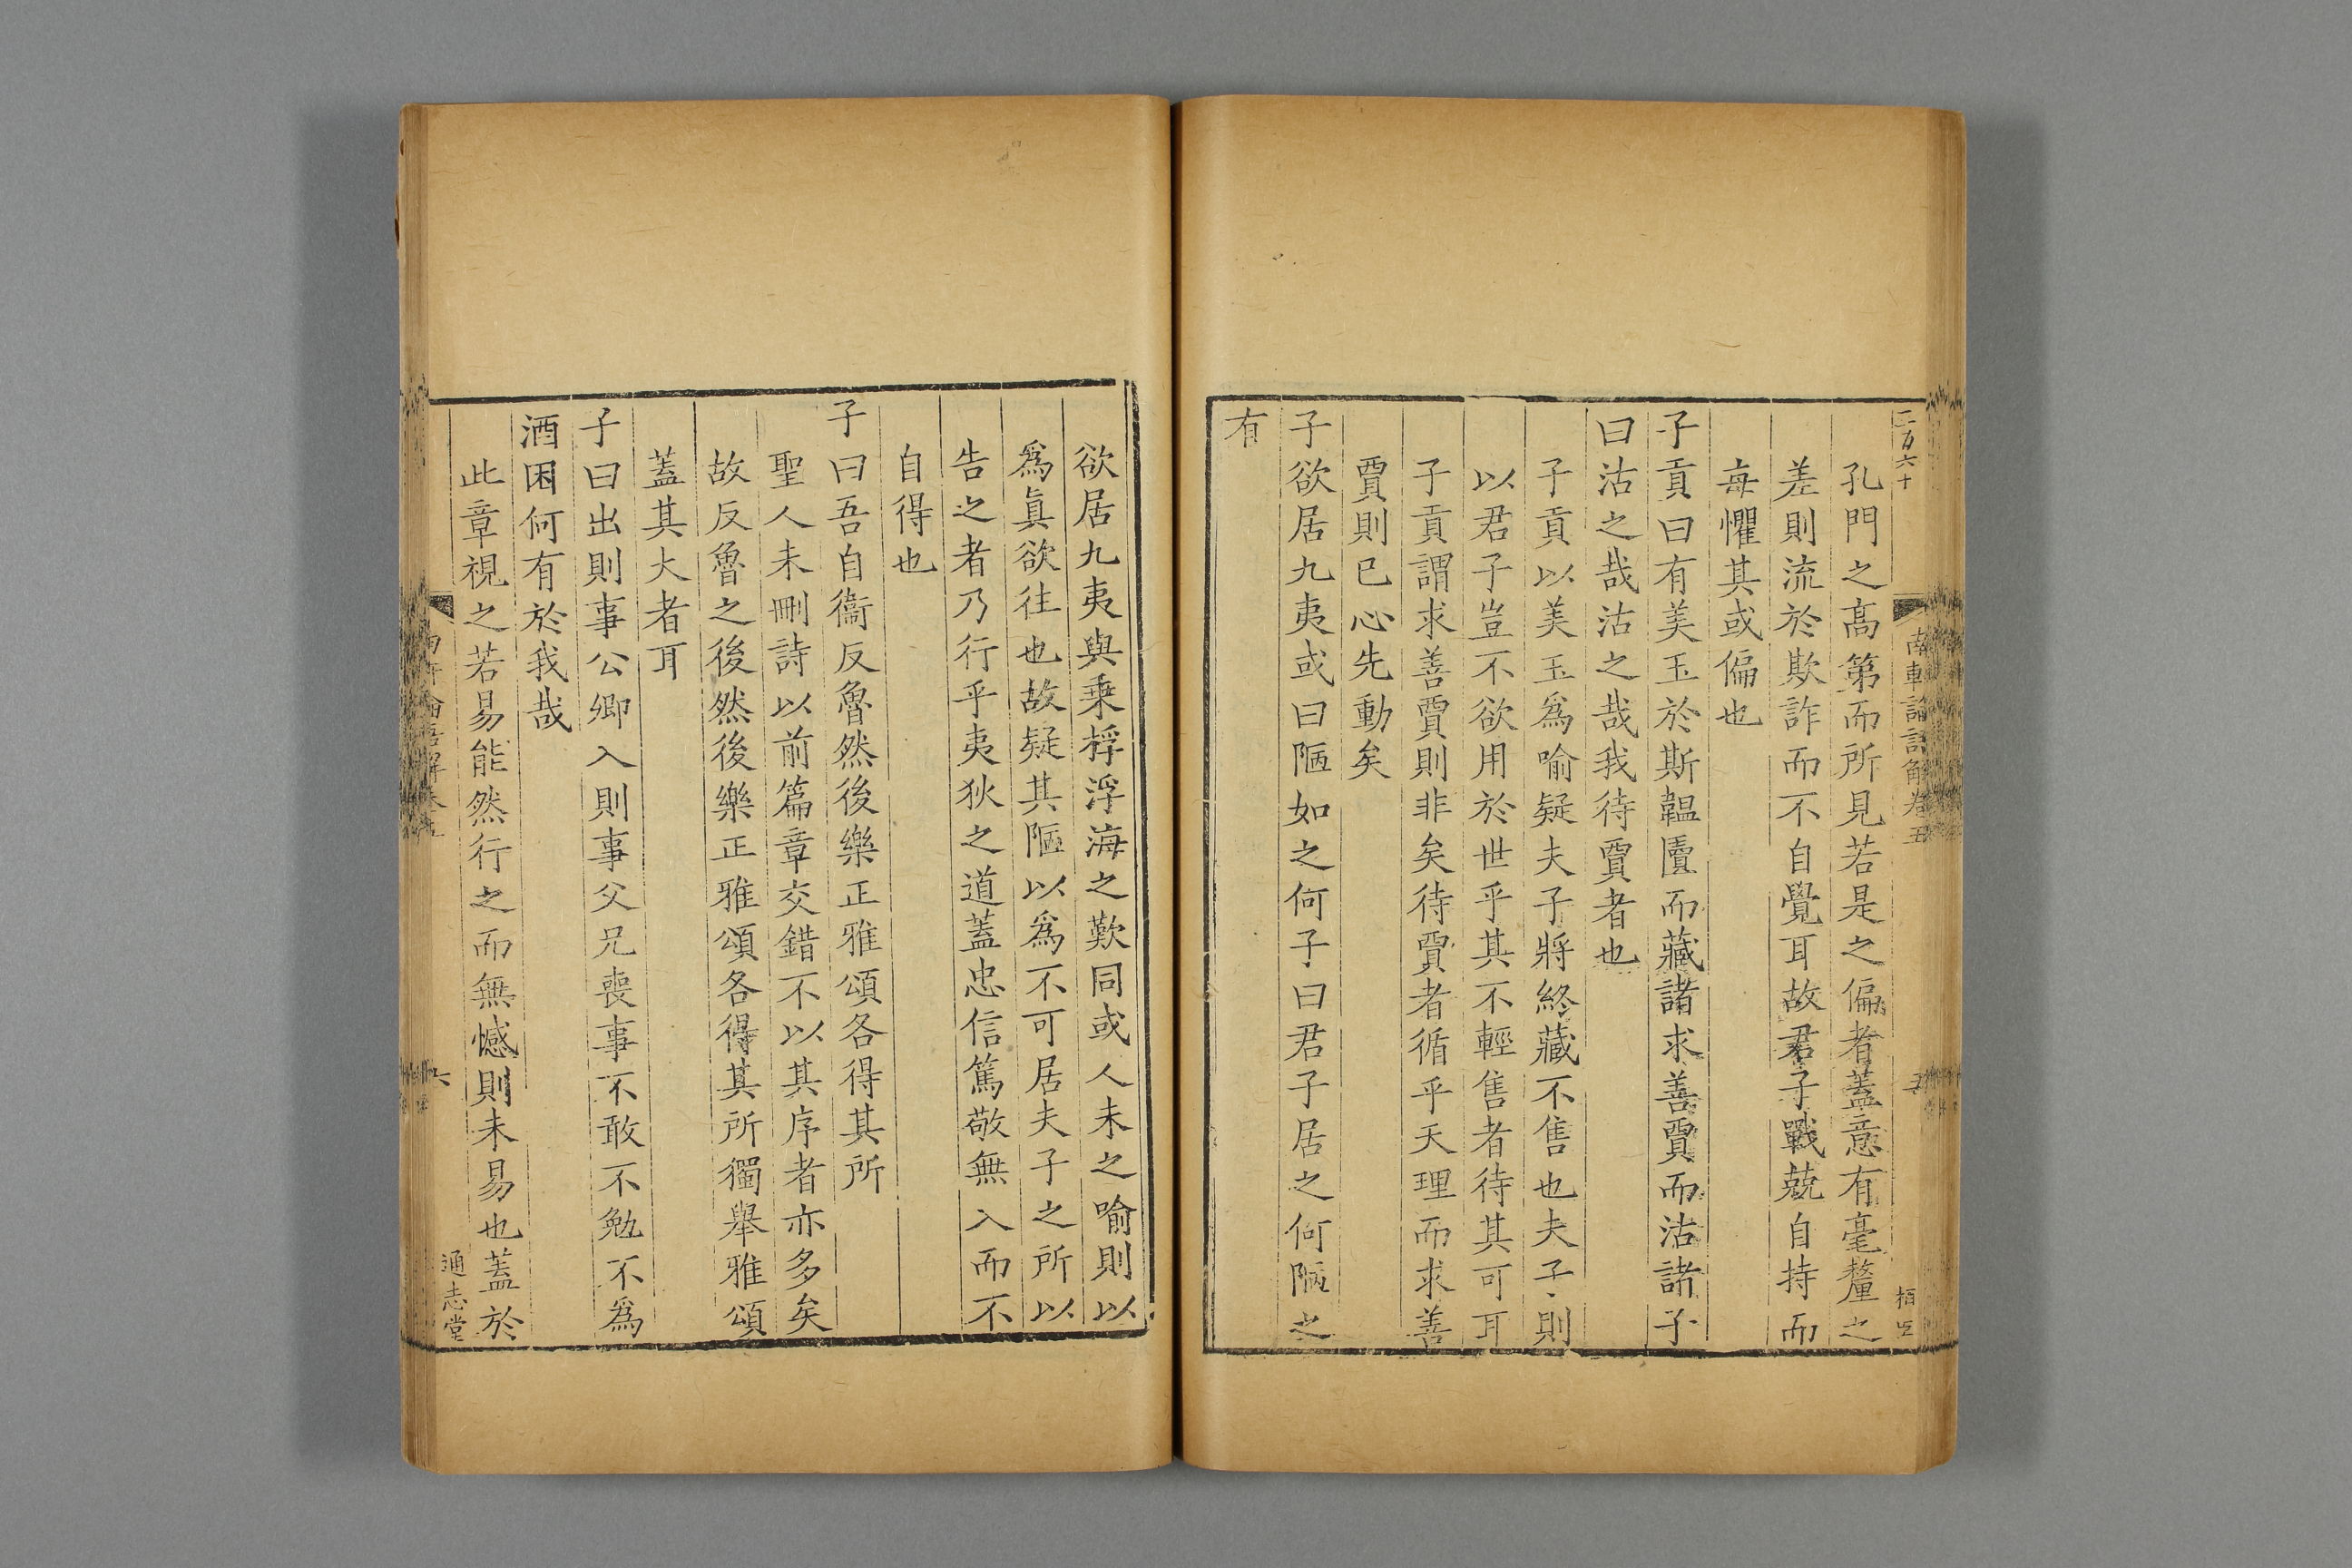 二百六十
南軒論語解卷五
五
孔門之高第而所見若是之偏者蓋意有毫釐之
差則流於欺詐而不自覺耳故君子戰兢自持而
每懼其或偏也
子貢曰有美玉於斯韞匵而藏諸求善賈而沽諸子
曰沽之哉沽之哉我待賈者也
子貢以美玉爲喻疑夫子將終藏不售也夫子則
以君子豈不欲用於世乎其不輕售者待其可耳
子貢謂求善賈則非矣待賈者循乎天理而求善
賈則已心先動矣
子欲居九夷或曰陋如之何子曰君子居之何陋之
有
欲居九夷與乗桴浮海之歎同或人未之喻則以
爲眞欲往也故疑其陋以爲不可居夫子之所以
告之者乃行乎夷狄之道蓋忠信篤敬無入而不
自得也
子曰吾自衞反魯然後樂正雅頌各得其所
聖人未刪詩以前篇章交錯不以其序者亦多矣
故反魯之後然後樂正雅頌各得其所獨舉雅頌
蓋其大者耳
子曰出則事公卿入則事父兄喪事不敢不勉不爲
酒困何有於我哉
此章視之若易能然行之而無憾則未易也蓋於
南軒論語解卷五
六
通志堂